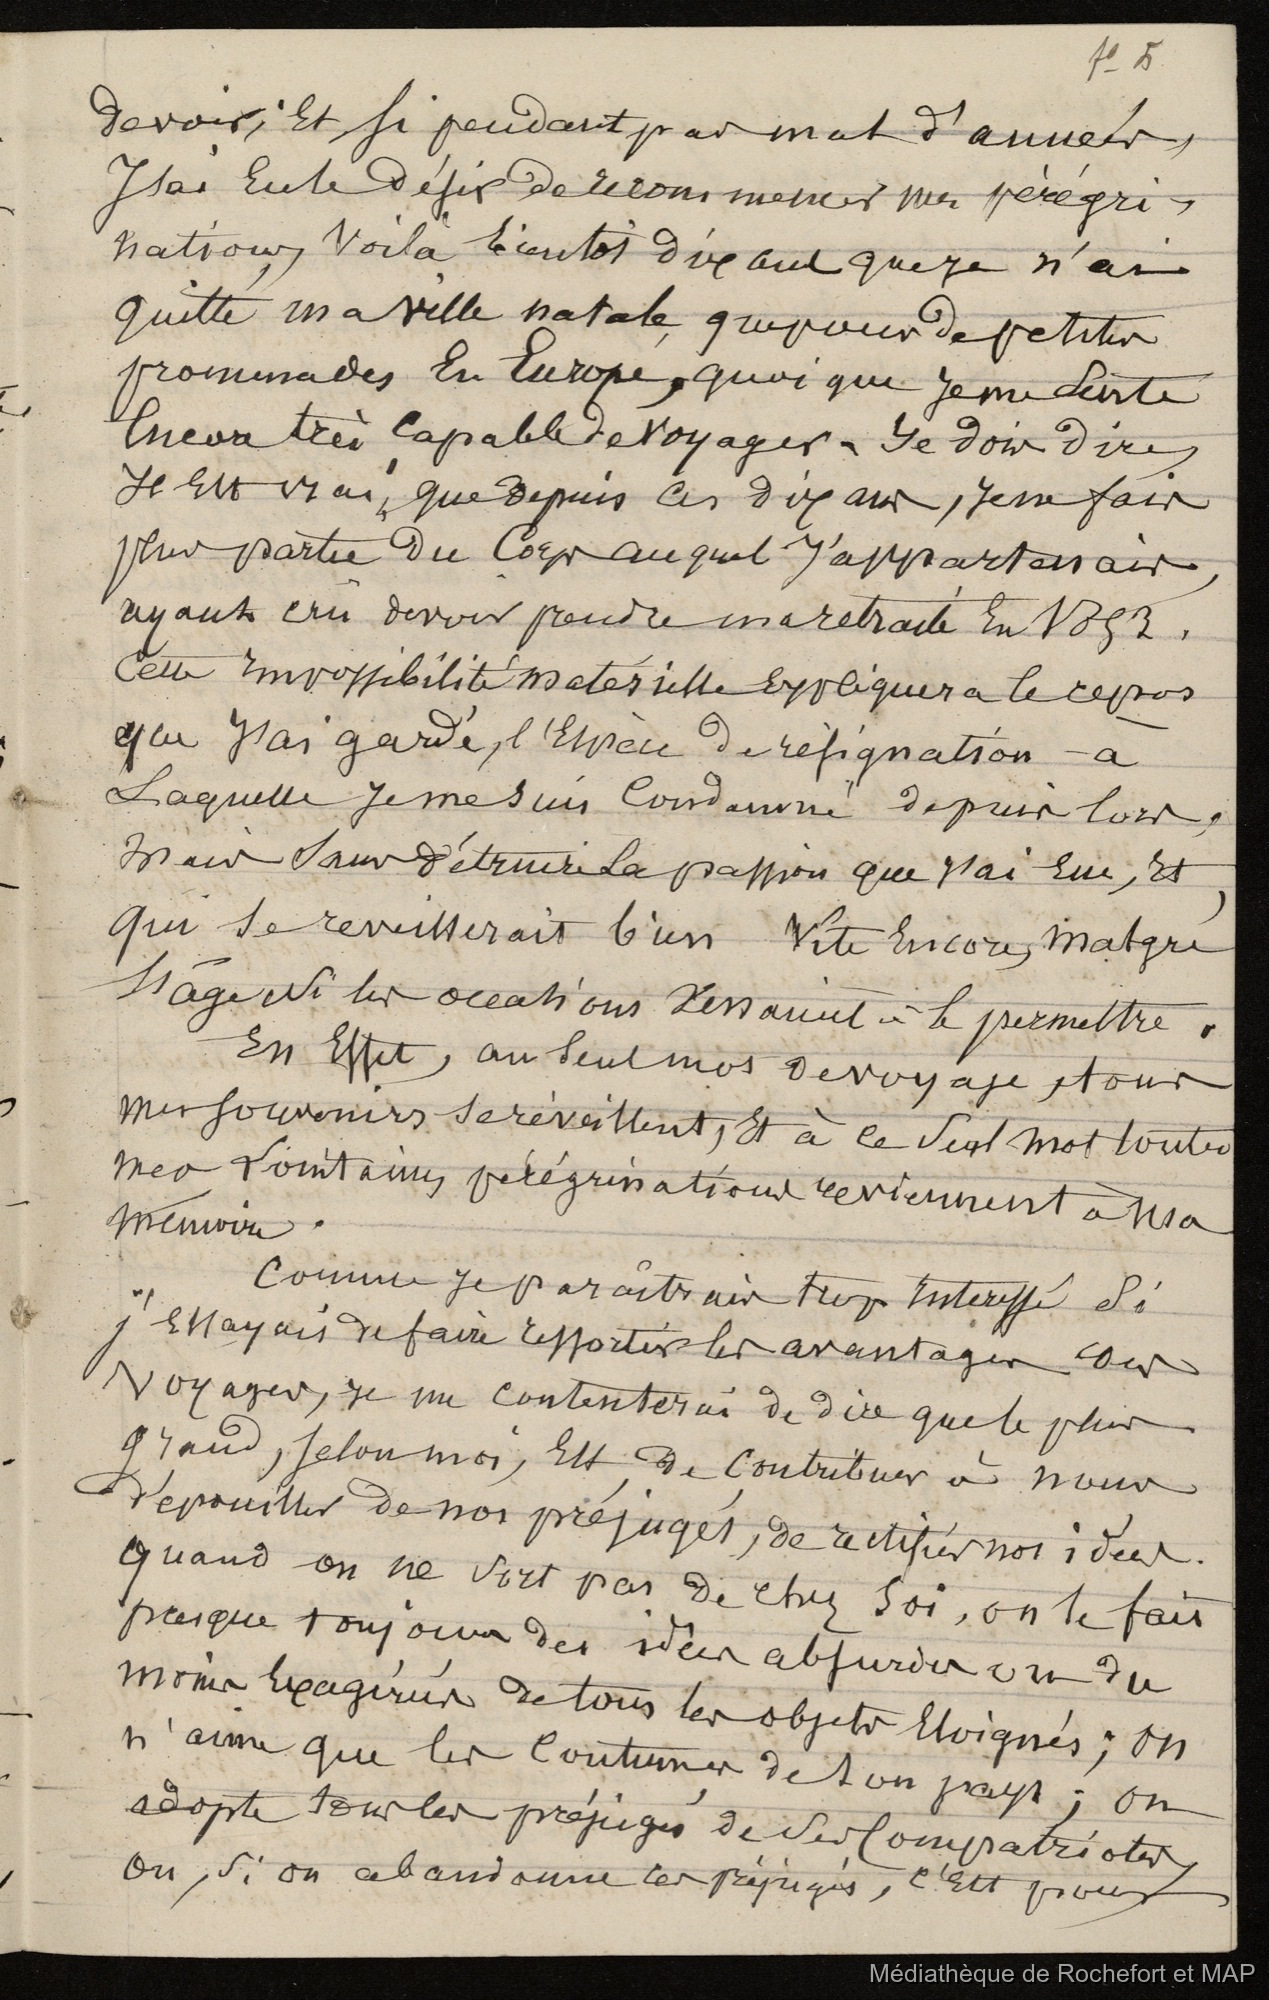 fo 5
devoir; Et si pendant pas mal d'années,
J'ai Eu le désir de recommencer mes pérégri-
nations, Voilà bientôt dix ans que je n'ai
quitté ma ville natale, que pour de petites
promenades En Europe, quoi que je me sente
Encore très capable de voyager. Je dois dire,
Il Est vrai, que depuis ces dix ans, je ne fais
plus partie du Corps auquel J'appartenais,
ayant crû devoir prendre ma retraite En
Cette Impossibilité matérielle Expliquera le repos
que J'ai gardé, l'Espèce de résignation à
Laquelle je me suis Condamné depuis lors,
Mais Sans détruire la passion que J'ai Eue, Et
qui se reveillerait bien Vite Encore, Malgré
l'âge si les occasions venaient à le permettre.
En Effet, au seul mot de voyage, tous
mes souvenirs se réveillent, Et à ce seul mot toutes
mes Lointaines pérégrinations reviennent à Ma
mémoire.
Comme je paraîtrais trop Interessé si
j'Essayais de faire ressortir les avantages des
Voyages, je me contenterai de dire que le plus
grand, selon moi, Est de Contribuer à nous
dépouiller de nos préjugés, de rectifier nos idées.
quand on ne sort pas de chez soi, on se fait
presque toujours des idées absurdes ou du
moins Exagérées de tous les objets Eloignés; on
n'aime que les Coutumes de son pays; on
adopte tous les préjugés de ses Compatriotes,
ou, si on abandonne ces préjugés, c'Est pour
Médiathèque de Rochefort et MAP